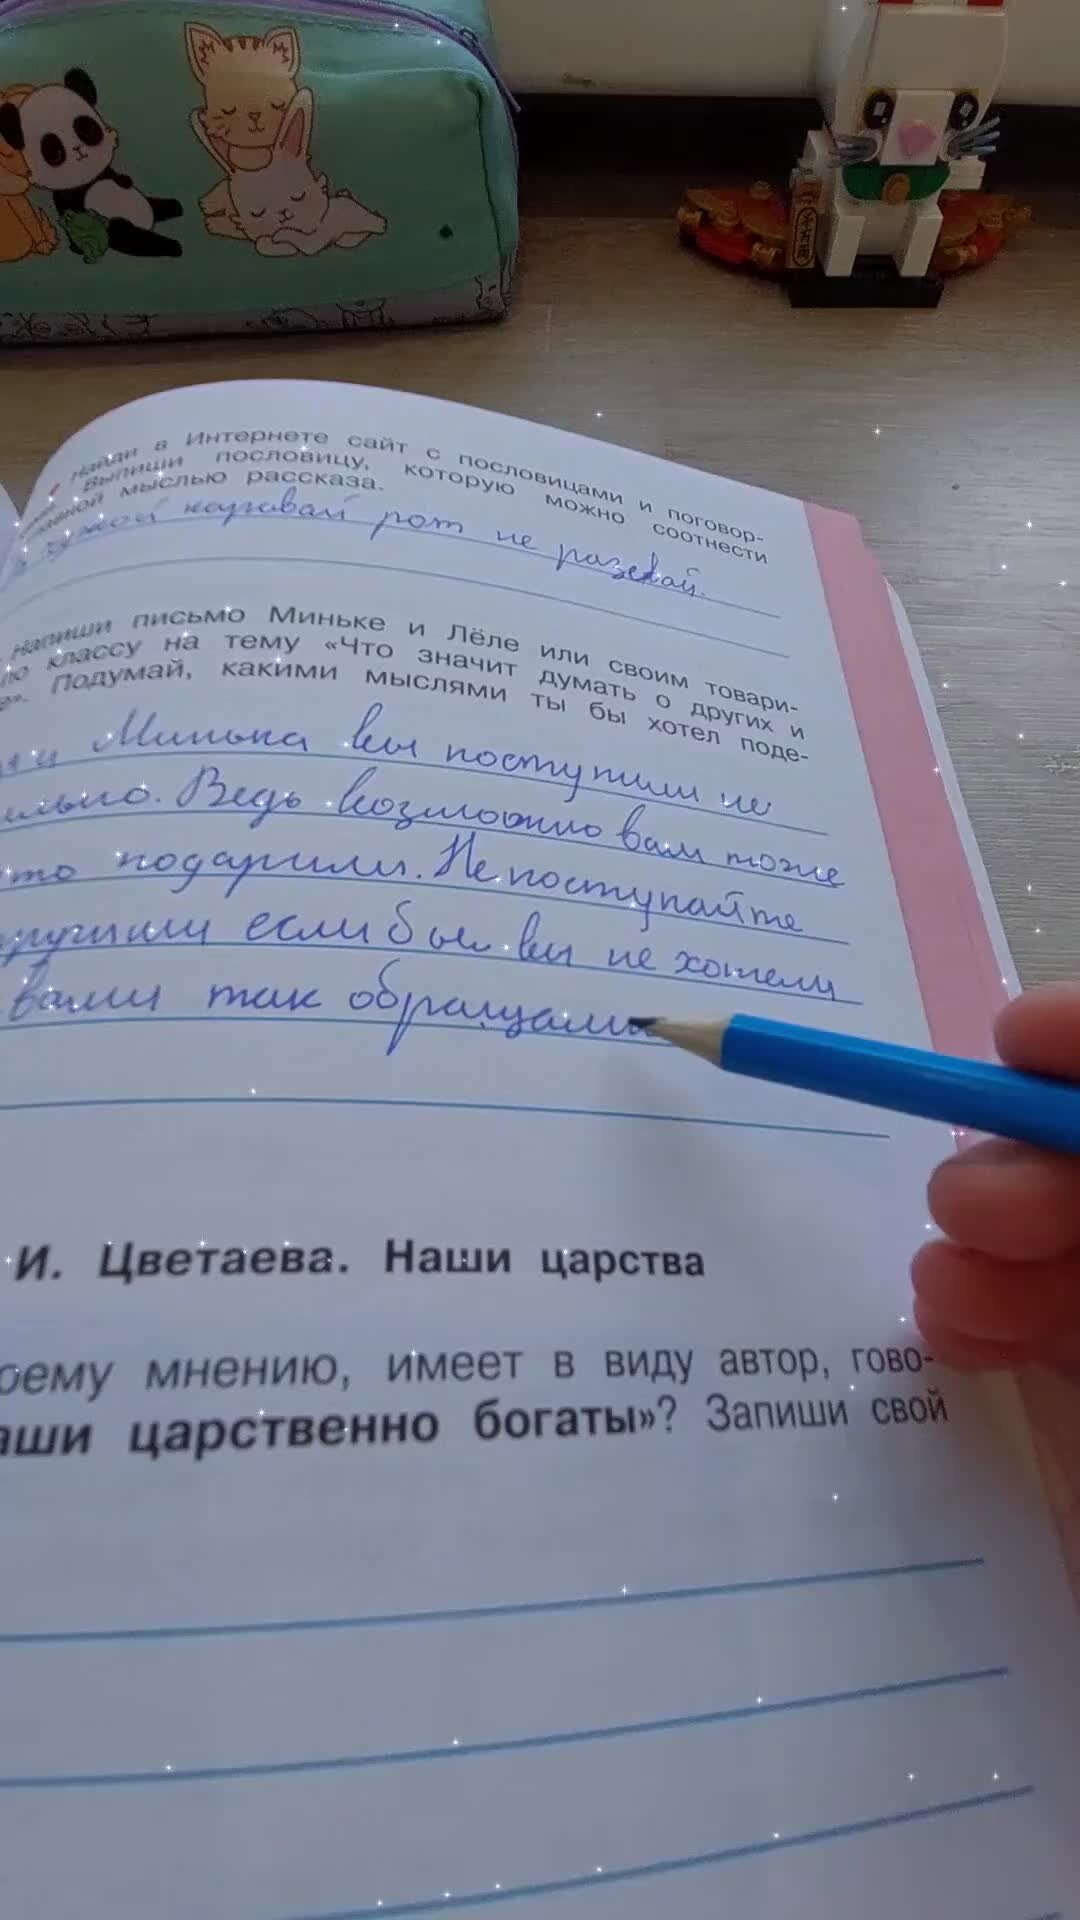 Найди в Интернете сайт с пословицами и поговор-
Выпиши пословицу, которую можно соотнести
главной мыслью рассказа.
чужой каравай рот не разевай.
Напиши письмо Миньке и Лёле или своим товари-
по классу на тему «Что значит думать о других и
Подумай, какими мыслями ты бы хотел поде-
и Минька вы поступили не
Ведь возможно вам тоже
подарили. Не поступайте
если бы вы не хотели
вами так обращались
И. Цветаева. Наши царства
оему мнению, имеет в виду автор, гово-
аши царственно богаты»? Запиши свой